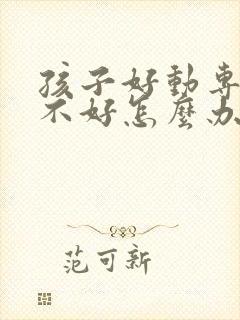 孩子好動專
不好怎麼办
范可新